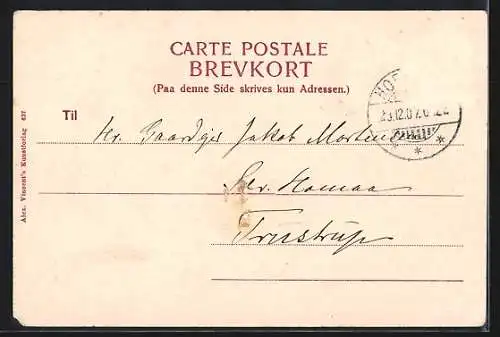 CARTE POSTALE
BREVKORT
(Paa denne Side skrives kun Adressen.)
Til
Hr. Gaardejer Jakob Mortensen
Trustrup
Alex. Vincent's Kunstforlag 637